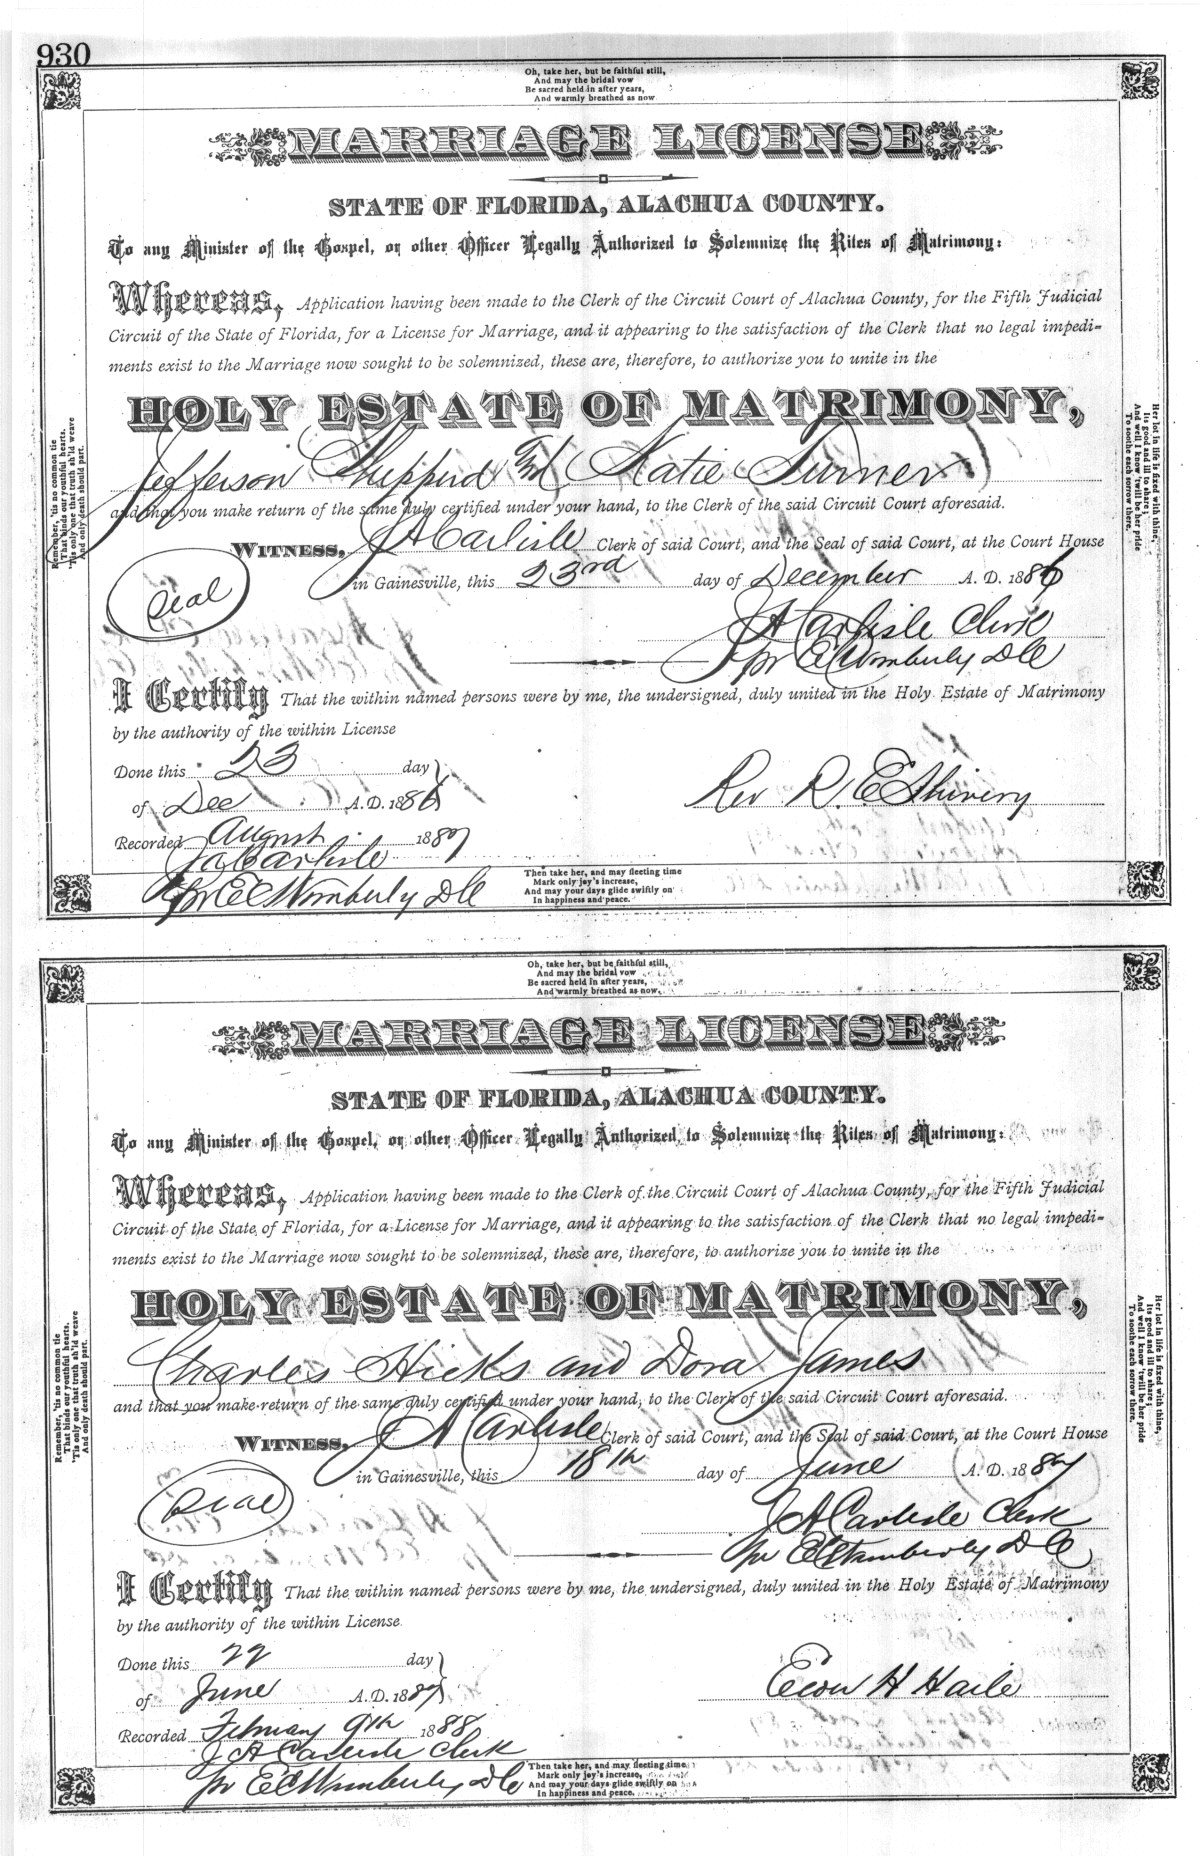 930
Oh, take her, but be faithful still,
And may the bridal vow
Be sacred held in after years,
And warmly breathed as now
MARRIAGE LICENSE
STATE OF FLORIDA, ALACHUA COUNTY.
To any Minister of the Gospel, or other Officer Legally Authorized to Solemnize the Rites of Matrimony:
Whereas, Application having been made to the Clerk of the Circuit Court of Alachua County, for the Fifth Judicial
Circuit of the State of Florida, for a License for Marriage, and it appearing to the satisfaction of the Clerk that no legal impedi-
ments exist to the Marriage now sought to be solemnized, these are, therefore, to authorize you to unite in the
HOLY ESTATE OF MATRIMONY,
Jefferson Shepperd and Katie Turner
and that you make return of the same duly certified under your hand, to the Clerk of the said Circuit Court aforesaid.
WITNESS, J A Carlisle Clerk of said Court, and the Seal of said Court, at the Court House
Seal
in Gainesville, this 23rd day of December A. D. 1886
J A Carlisle Clerk
pr E C Wimberly D C
I Certify That the within named persons were by me, the undersigned, duly united in the Holy Estate of Matrimony
by the authority of the within License
Done this 23 day
of Dec A. D. 1886
Rev R. E Shivery
Recorded August 1887
J A Carlisle
pr E C Wimberly D C
Then take her, and may fleeting time
Mark only joy's increase,
And may your days glide swiftly on
In happiness and peace.
Remember, 'tis no common tie
That binds our youthful hearts.
'Tis only one that truth sh'ld weave
And only death should part.
Her lot in life is fixed with thine,
Its good and ill to share;
And well I know 'twill be her pride
To soothe each sorrow there.
Oh, take her, but be faithful still,
And may the bridal vow
Be sacred held in after years,
And warmly breathed as now.
MARRIAGE LICENSE
STATE OF FLORIDA, ALACHUA COUNTY.
To any Minister of the Gospel, or other Officer Legally Authorized to Solemnize the Rites of Matrimony:
Whereas, Application having been made to the Clerk of the Circuit Court of Alachua County, for the Fifth Judicial
Circuit of the State of Florida, for a License for Marriage, and it appearing to the satisfaction of the Clerk that no legal impedi-
ments exist to the Marriage now sought to be solemnized, these are, therefore, to authorize you to unite in the
HOLY ESTATE OF MATRIMONY,
Charles Hicks and Dora James
and that you make return of the same duly certified under your hand, to the Clerk of the said Circuit Court aforesaid.
WITNESS, J A Carlisle Clerk of said Court, and the Seal of said Court, at the Court House
Seal
in Gainesville, this 18th day of June A. D. 1887
J A Carlisle Clerk
pr E C Wimberly D C
I Certify That the within named persons were by me, the undersigned, duly united in the Holy Estate of Matrimony
by the authority of the within License.
Done this 22 day
of June A. D. 1887
H Haile
Recorded February 9th 1888
J A Carlisle Clerk
pr E C Wimberly D C
Then take her, and may fleeting time
Mark only joy's increase,
And may your days glide swiftly on
In happiness and peace.
Remember, 'tis no common tie
That binds our youthful hearts.
'Tis only one that truth sh'ld weave
And only death should part.
Her lot in life is fixed with thine,
Its good and ill to share;
And well I know 'twill be her pride
To soothe each sorrow there.